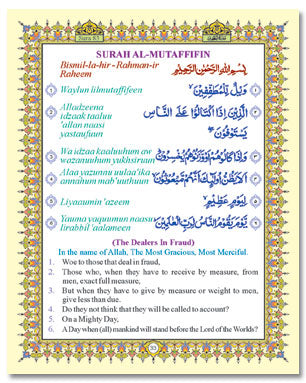 Sura 83
SURAH AL-MUTAFFIFIN
Bismil-la-hir - Rahman-ir
Raheem
بِسْمِ اللهِ الرَّحْمٰنِ الرَّحِيْمِ
1 Waylun lilmutaffifeen
وَيْلٌ لِّلْمُطَفِّفِيْنَ ۙ ١
2 Alladzeena
idzaak taaluu
'allan naasi
yastaufuun
الَّذِيْنَ اِذَا اكْتَالُوْا عَلَى النَّاسِ
يَسْتَوْفُوْنَ ۖ ٢
3 Wa idzaa kaaluuhum aw
wazanuuhum yukhsiruun
وَاِذَا كَالُوْهُمْ اَوْ وَّزَنُوْهُمْ يُخْسِرُوْنَ ۗ ٣
4 Alaa yazunnu uulaa'ika
annahum mab'uuthuun
اَلَا يَظُنُّ اُولٰٓئِكَ اَنَّهُمْ مَّبْعُوْثُوْنَ ۙ ٤
5 Liyaaumin 'azeem
لِيَوْمٍ عَظِيْمٍ ۙ ٥
6 Yauma yaquumun naasu
lirabbil 'aalameen
يَّوْمَ يَقُوْمُ النَّاسُ لِرَبِّ الْعٰلَمِيْنَ ۗ ٦
(The Dealers In Fraud)
In the name of Allah, The Most Gracious, Most Merciful.
1. Woe to those that deal in fraud,
2. Those who, when they have to receive by measure, from
men, exact full measure,
3. But when they have to give by measure or weight to men,
give less than due.
4. Do they not think that they will be called to account?
5. On a Mighty Day,
6. A Day when (all) mankind will stand before the Lord of the Worlds?
33